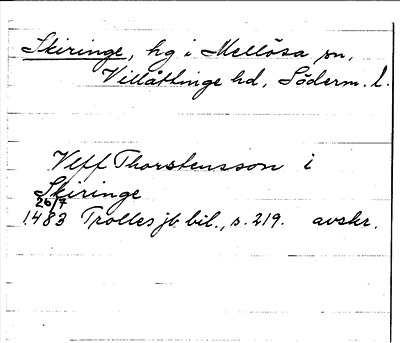 Skiringe, hg i Mellösa sn,
Villåttinge hd, Söderm. l.
Ulff Thorstensson i
Skiringe
26/7
1483 Trolles jb bil., s. 219. avskr.